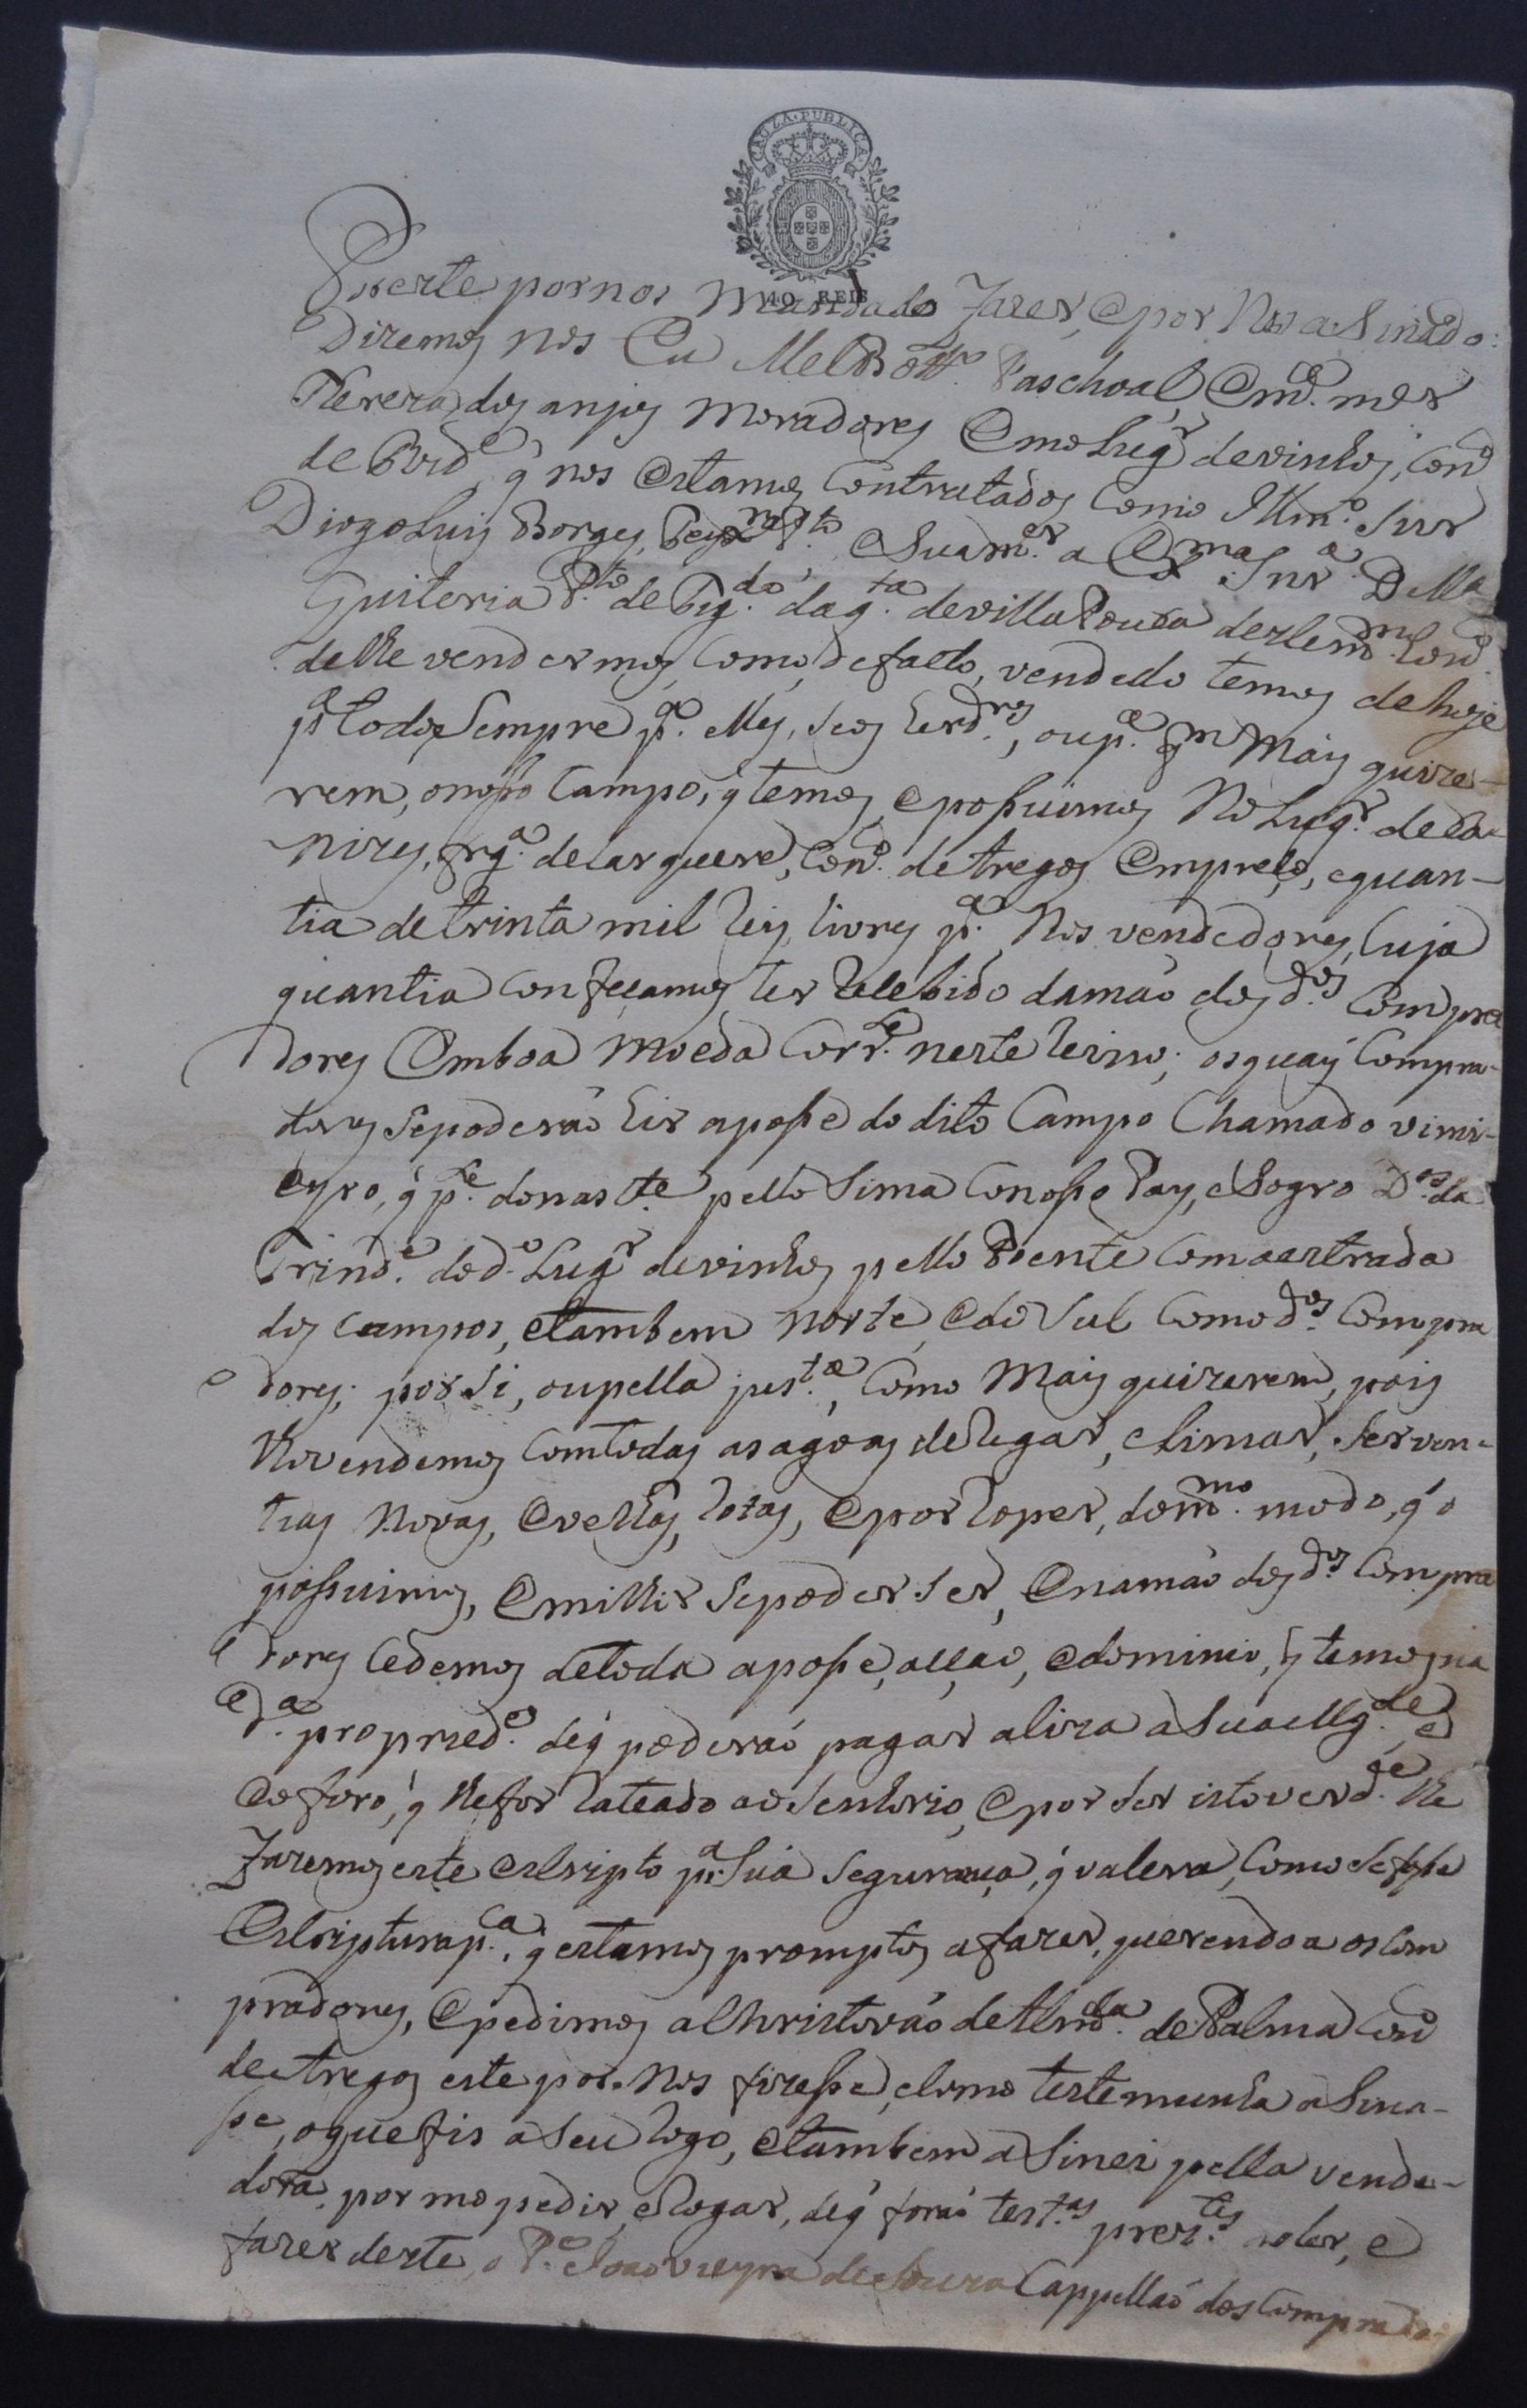 CAUZA PUBLICA
40 REIS
Por este por nos mandado fazer, e por Nos asinado:
Dizemos nos Eu Mel Bott.º Paschoal, e m.ª mer
Thereza dos anjos moradores Em o Lug.r de vinhos, Con.º
de q̃ nos Estamos Contratados Com o Illm.º Snr
Diogo Luis Borges, P.to e Sua m.er a Ex.ma Snr.ª D. Ma
Quiteria P.to de Fig.do da q.ta de villa Pouca deste m.mo Con.º
de lhe vendermos, Como, de facto, vendido temos de hoje
p.ª todo Sempre p.ª elles, seos herd.ros, ou p.ª q.m mais quize-
rem, o nosso Campo, q̃ temos, e possuimos No Lug.r de Ca-
nizes, frg.ª de carquere, Con.º de tregos Em preço, e quan-
tia de trinta mil reis, livres p.ª Nos vendedores, Cuja
quantia Confeçamos ter recebido da mão dos d.os Compra
dores Em boa moeda Corr.te neste reino; os quais Compra-
dores se poderão hir a posse do dito Campo Chamado vimi-
eyro, q̃ p.te do nas.te pello Sima Com nosso Pay, e Sogro D.os da
Trind.e do d.º Lug.r de vinhos pello Poente Com a estrada
dos Campos, e tambem norte, e do Sul Com o d.os Compra
dores; por si, ou pella just.ª, Como Mais quizerem, pois
lho vendemos Com todas as agoas de regar, e Limar, Serven-
tias Novas, e velhas, rotas, e por romper, do m.mo modo, q̃ o
possuimos, e milhor se poder ser, e na mão dos d.os Compra
dores Cedemos de toda a posse, acção, e dominio, q̃ temos na
d.ª propried.e de q̃ poderáó pagar a siza a Sua Mg.de e
o foro, q̃ lhe for rateado ao Senhorio, e por ser isto verd.e lhe
fazemos este escripto p.ª Sua Segurança, q̃ valerá, Como se fosse
Escriptura p.ca, q̃ estamos promptos a fazer, querendo a os Com
pradores, e pedimos a Christovão de Alm.da de Palma Con.º
de tregos este por Nos fizesse, e Como testemunha asina-
se, o que fis a seu rogo, e tambem asinei pella vende-
dora, por mo pedir, e rogar, de q̃ foraó test.as prez.tes ao ler, e
fazer deste, o P.e Joaó vieyra de Souza Cappellaó dos Comprado-